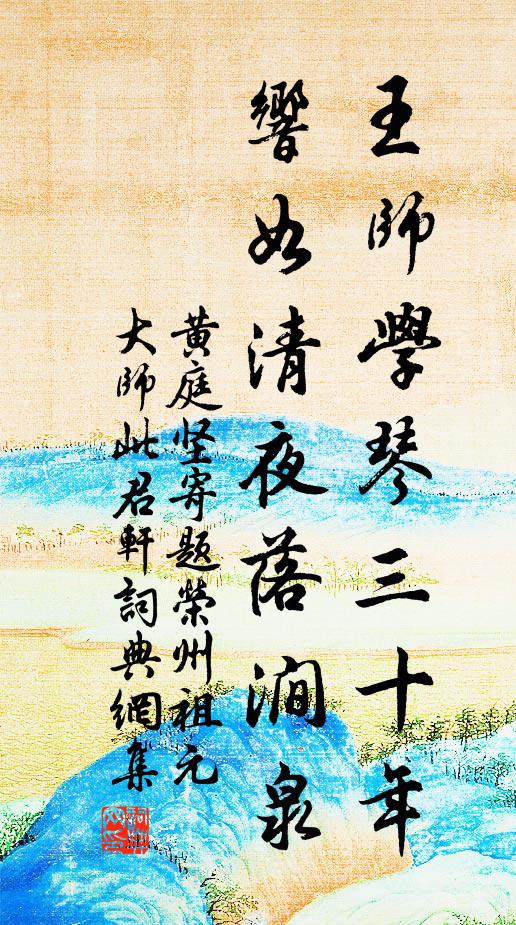 王師學琴三十年
響如清夜落澗泉
黄庭坚寄題榮州祖元
大師此君軒詞典網集